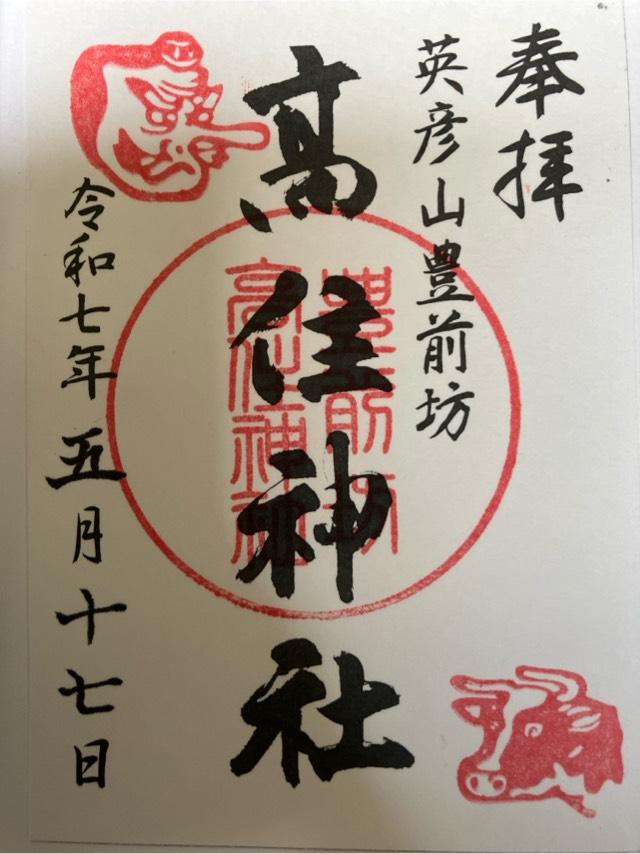 奉拝
英彦山豊前坊
高住神社
豊前坊
高住神社
令和七年五月十七日